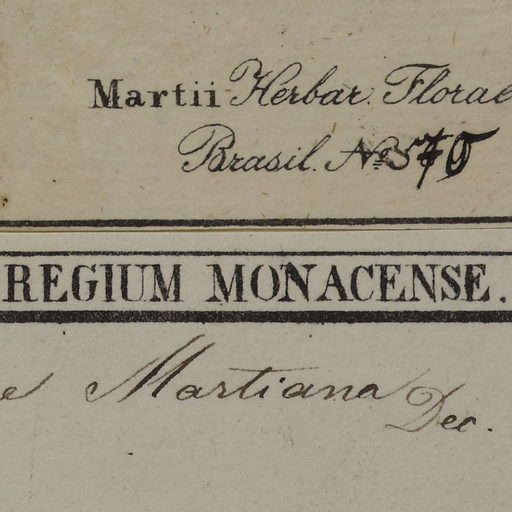 Martii Herbar. Florae
Brasil. No 570
REGIUM MONACENSE.
e Martiana Dec.